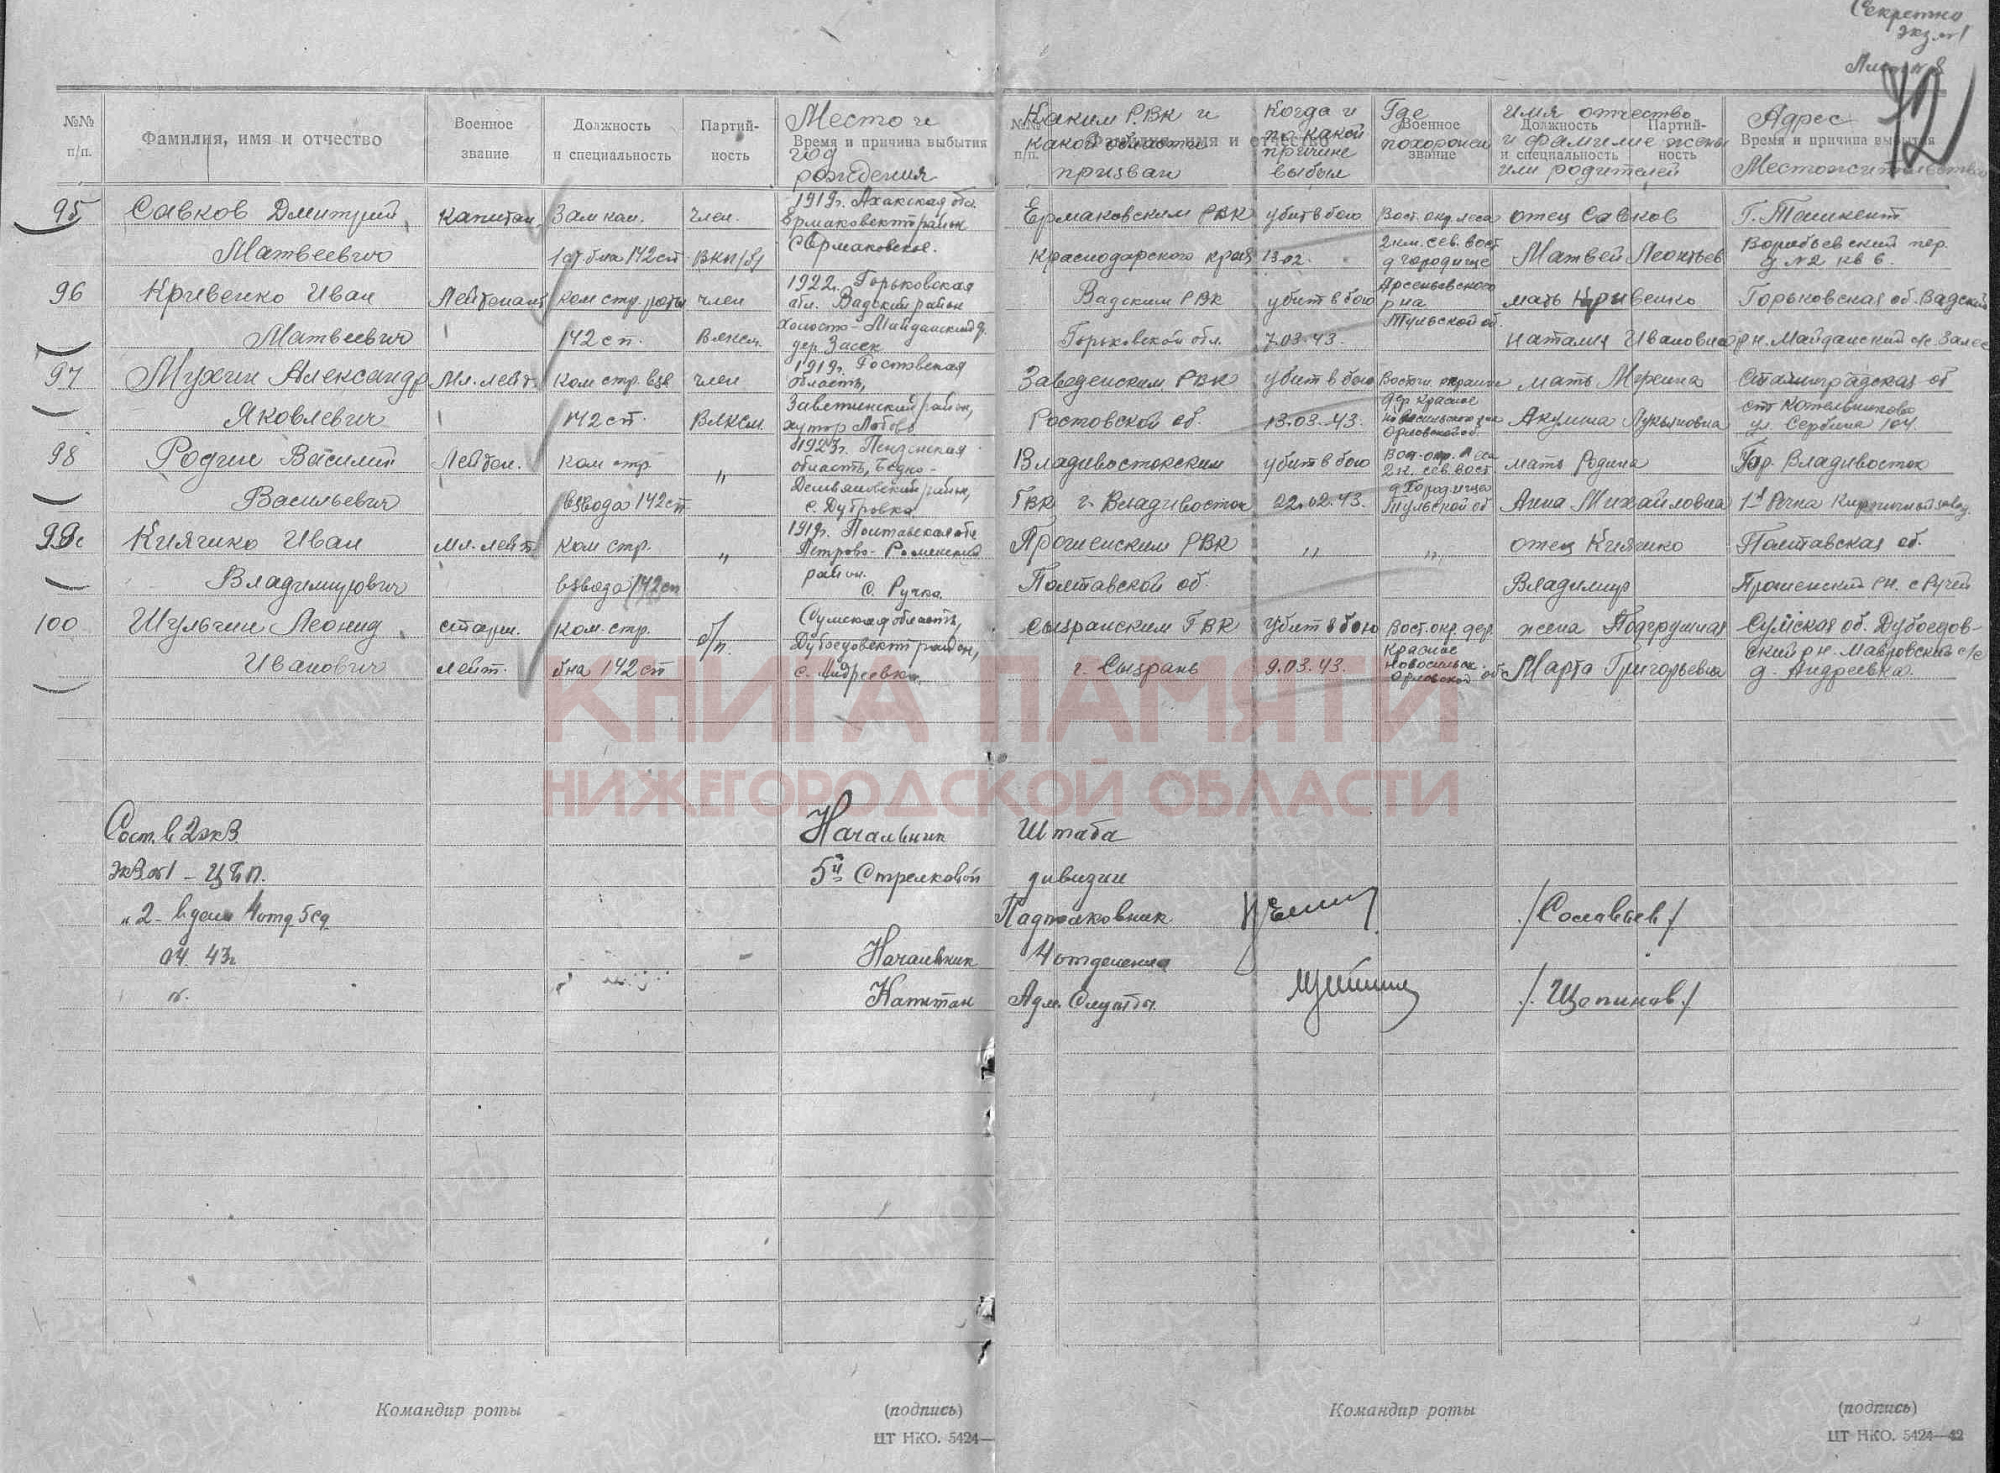 Секретно
экз. №1
Лист № 8
12
№№ п/п. Фамилия, имя и отчество Военное звание Должность и специальность Партий-ность Время и причина выбытия
Место и год рождения
№№ п/п. Фамилия, имя и отчество Военное звание Должность и специальность Партий-ность Время и причина выбытия
Каким РВК и какой области призван Когда и по какой причине выбыл Где похоронен имя отчество и фамилие жены или родителей Адрес Местожительства
95 Савков Дмитрий капитан Зам ком. член. 1919г. обл. Ермаковский район Ермаковским РВК убит в бою Вост. окр. леса отец Савков г. Ташкент
Матвеевич 1 ст. б-на 142 сп ВКП/б/ с Ермаковское. Краснодарского края 13.02. 2 км. сев. вост. д Городище Матвей Леонтьев Воробьевский пер. д №2 кв 6.
96 Кривенко Иван Лейтенант ком стр. роты член 1922г. Горьковская обл. Вадский район Вадским РВК убит в бою Арсеньевского р-на мать Кривенко Горьковская об. Вадский
Матвеевич 142 сп. Влксм. Холосто-Майданский дер. Засек Горьковской обл. 7.03.43. Тульской об. Наталия Ивановна р-н. Майданский с/с Залес
97 Мухин Александр Мл. лейт. ком стр. взв член 1919г. Ростовская область, убит в бою Восточ. окраина мать Сталинградская об
Яковлевич 142 сп. ВЛКСМ. район, хутор Ростовской об. 13.03.43. дер Красное Орловской об. Акулина Лукьяновна ст Котельниково ул. 104
98 Родин Василий Лейтен. ком стр. „ 1923г. Пензенская область, Бедно- Владивостокским убит в бою Вост. окр. леса 2 к. сев. вост. мать Родина Гор. Владивосток
Васильевич взвода 142 сп Демьяновский район, с. Дубровка ГВК г. Владивосток 22.02.43. д Городище Тульской об Анна Михайловна 1я Речка Кирпичный завод.
99 Киячко Иван мл. лейт. ком стр. „ 1919г. Полтавская обл Петрово-Роменский РВК „ „ отец Киячко Полтавская об.
Владимирович взвода 142 сп район. с. Ручка. Полтавской об. Владимир р-н. с Ручей
100 Шульгин Леонид старш. ком. стр. б/п. Сумская область, Сызранским ГВК Убит в бою Вост. окр. дер. жена Подгрушная Сумская об.
Иванович лейт. б-на 142 сп район, с. Андреевка. г. Сызрань 9.03.43. Красное Новосильск. Орловской обл Марта Григорьевна р-н. с/с д. Андреевка.
КНИГА ПАМЯТИ
НИЖЕГОРОДСКОЙ ОБЛАСТИ
Сост. в 2 экз. Начальник Штаба
экз. №1 – 5й Стрелковой дивизии
„ 2 - в дело 4 отд. 5 сд Подполковник /Соловьев/
04. 43г. Начальник 4 отделения
Капитан Адм. Службы. /Щепинов/
Командир роты (подпись) Командир роты (подпись)
ЦТ НКО. 5424— ЦТ НКО. 5424—42